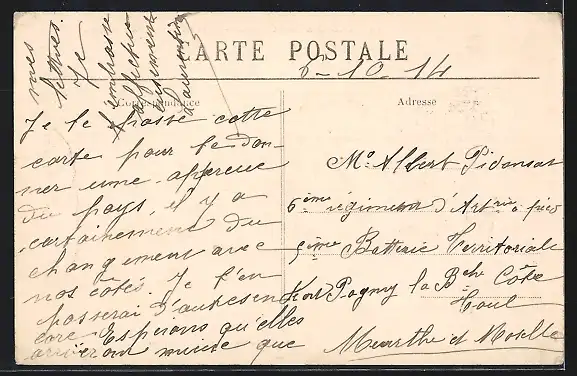 CARTE POSTALE
6-10-14
Correspondance
Adresse
Je te passe cette
carte pour te don-
ner une apperçue
du pays, il y a
certainement du
changement avec
nos côtés. Je t'en
passerai d'autres en
core Esperons qu'elles
arriveron mieux que
mes
lettres.
Je
t'embrasse
affectueu
Mr Albert Pidansat
6ème régiment d'Artrie à pied
5ème Batterie Territoriale
Fort Pagny la Bche Côte
Toul
Meurthe et Moselle